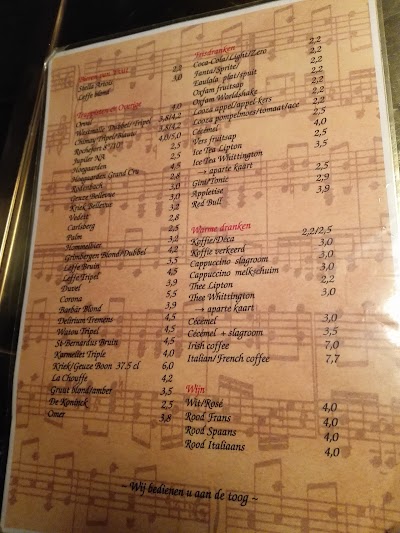 Bieren van 't vat
Stella Artois 2,2
Leffe blond 3,0
Trappisten en Overige
Orval 4,0
Westmalle Dubbel/Tripel 3,8/4,2
Chimay Tripel/Blauw 3,8/4,2
Rochefort 8°/10° 4,0/5,0
Jupiler NA 2,5
Hoegaarden 2,5
Hoegaarden Grand Cru
Rodenbach
Geuze Bellevue
Kriek Bellevue
Vedett 2,8
Carlsberg
Palm 2,5
Hommelbier 3,2
Grimbergen Blond/Dubbel
Leffe Bruin 3,5
Leffe Tripel
Duvel
Corona
Barbār Blond 3,9
Delirium Tremens 4,5
Watou Tripel 4,5
St-Bernardus Bruin 4,5
Karmeliet Triple 4,0
Kriek/Geuze Boon 37.5 cl 6,0
La Chouffe 4,2
Gruut blond/amber 3,5
De Koninck 2,5
Omer 3,8
Frisdranken
Coca-Cola/Light/Zero 2,2
Fanta/Sprite/ 2,2
Eaulala plat/spuit 2,2
Oxfam fruitsap 2,2
Oxfam Worldshake 2,2
Looza appel/appel-kers 2,2
Looza pompelmoes/tomaat/ace 2,2
Cécémel 2,5
Vers fruitsap 4,0
Ice Tea Lipton 2,5
Ice Tea Whittington 3,5
→ aparte kaart
Gini/Tonic 2,5
Appletise 2,9
Red Bull 3,9
Warme dranken
Koffie/Deca 2,2/2,5
Koffie verkeerd 3,0
Cappuccino slagroom 3,0
Cappuccino melkschuim 3,0
Thee Lipton 2,2
Thee Whittington 3,0
→ aparte kaart
Cécémel 3,0
Cécémel + slagroom 3,5
Irish coffee 7,0
Italian/French coffee 7,7
Wijn
Wit/Rosé 4,0
Rood Frans 4,0
Rood Spaans 4,0
Rood Italiaans 4,0
~ Wij bedienen u aan de toog ~